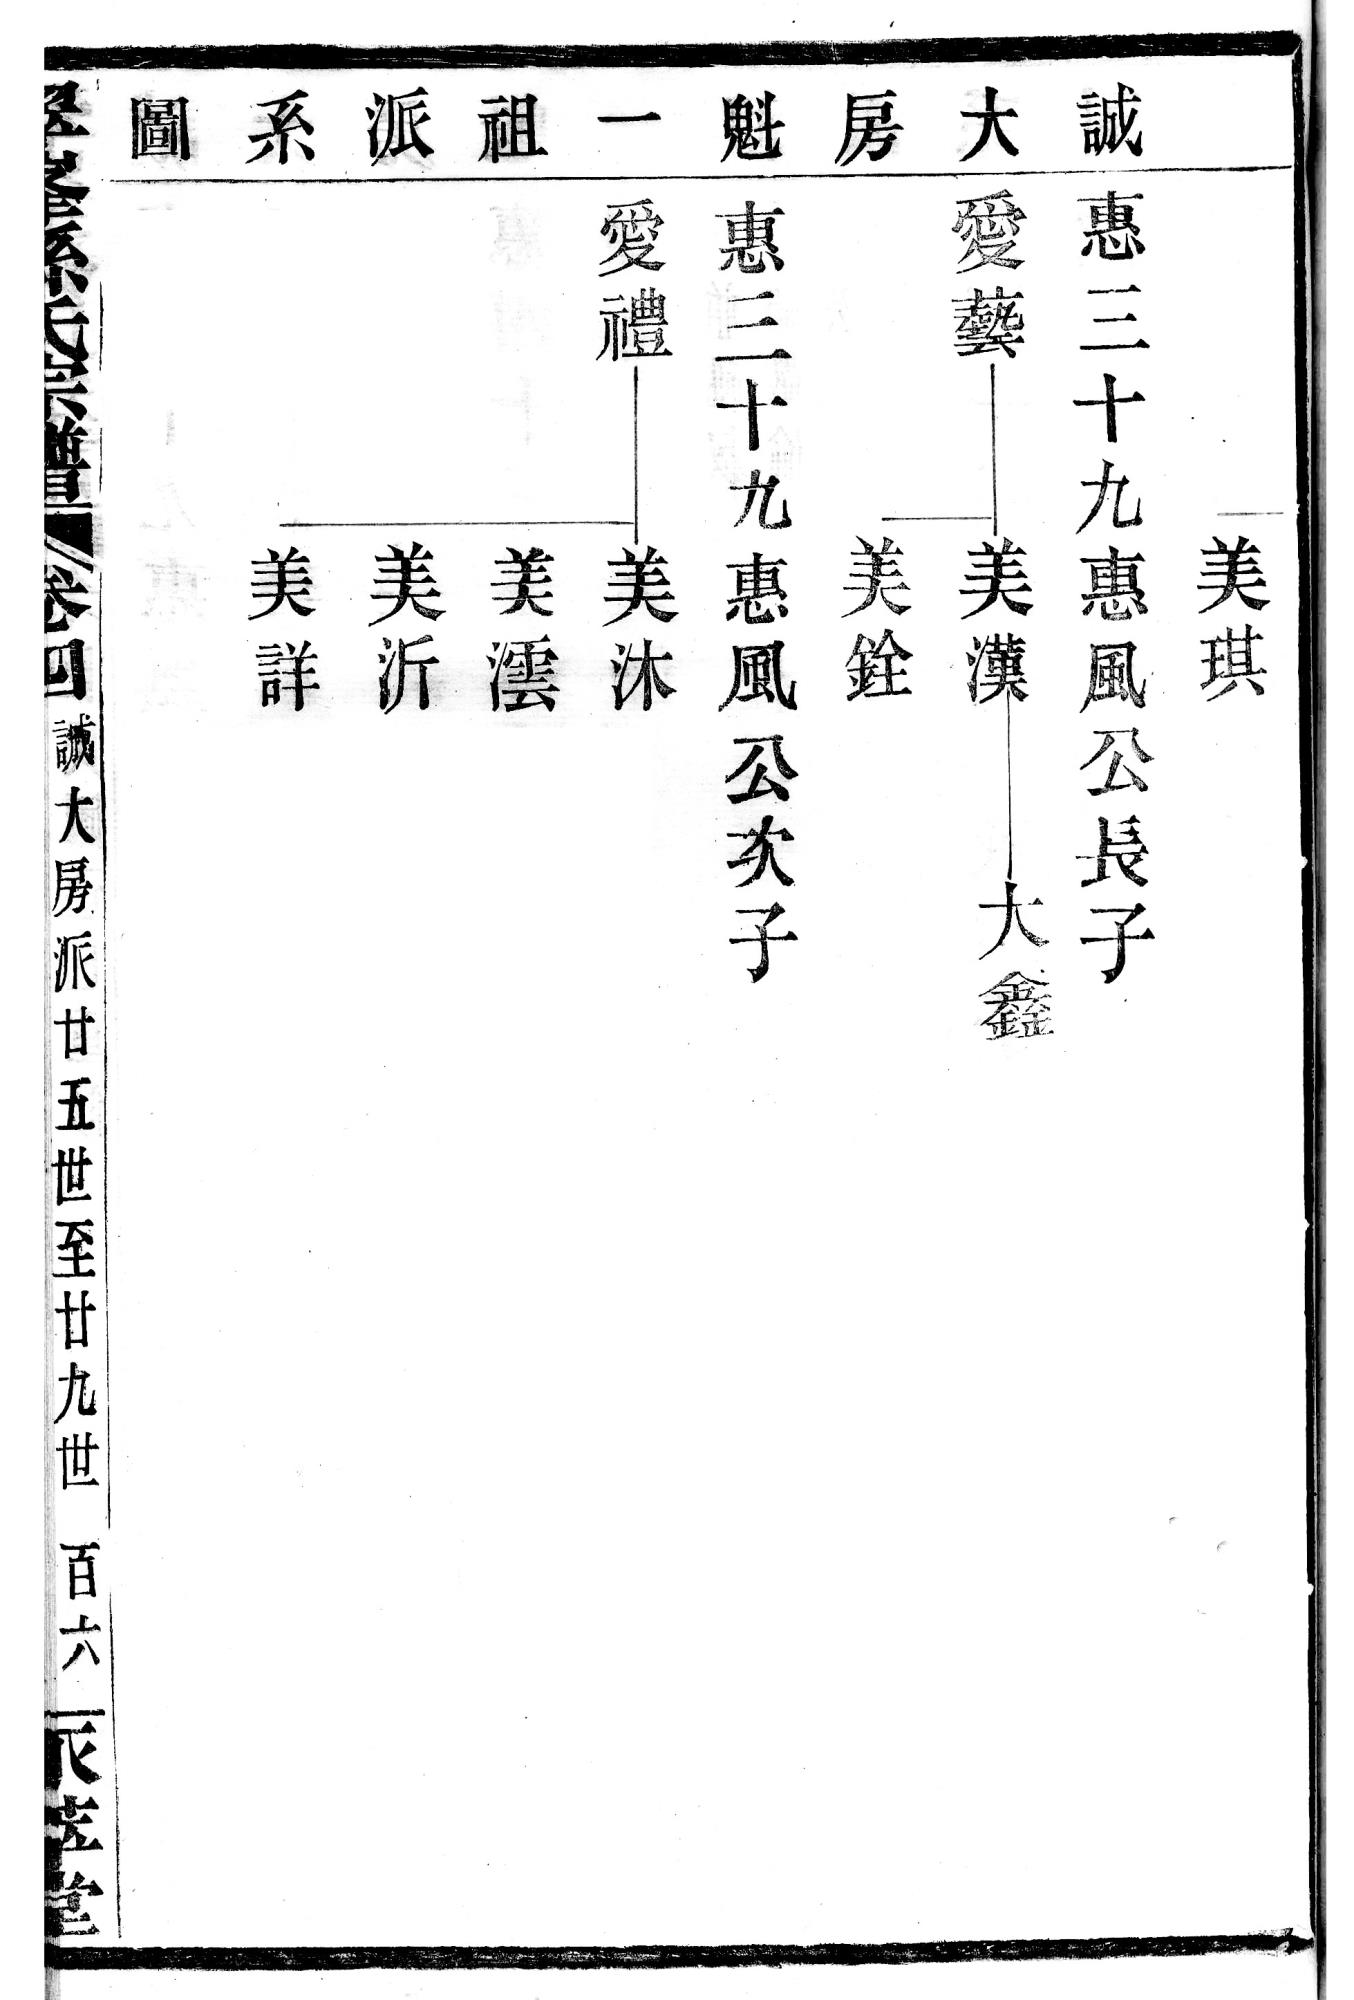 誠大房魁一祖派系圖
美琪
惠三十九惠風公長子
愛藝
美漢
大鑫
美銓
惠三十九惠風公次子
愛禮
美沐
美澐
美沂
美詳
孫氏宗譜
卷四
誠大房派廿五世至廿九世
百六
堂